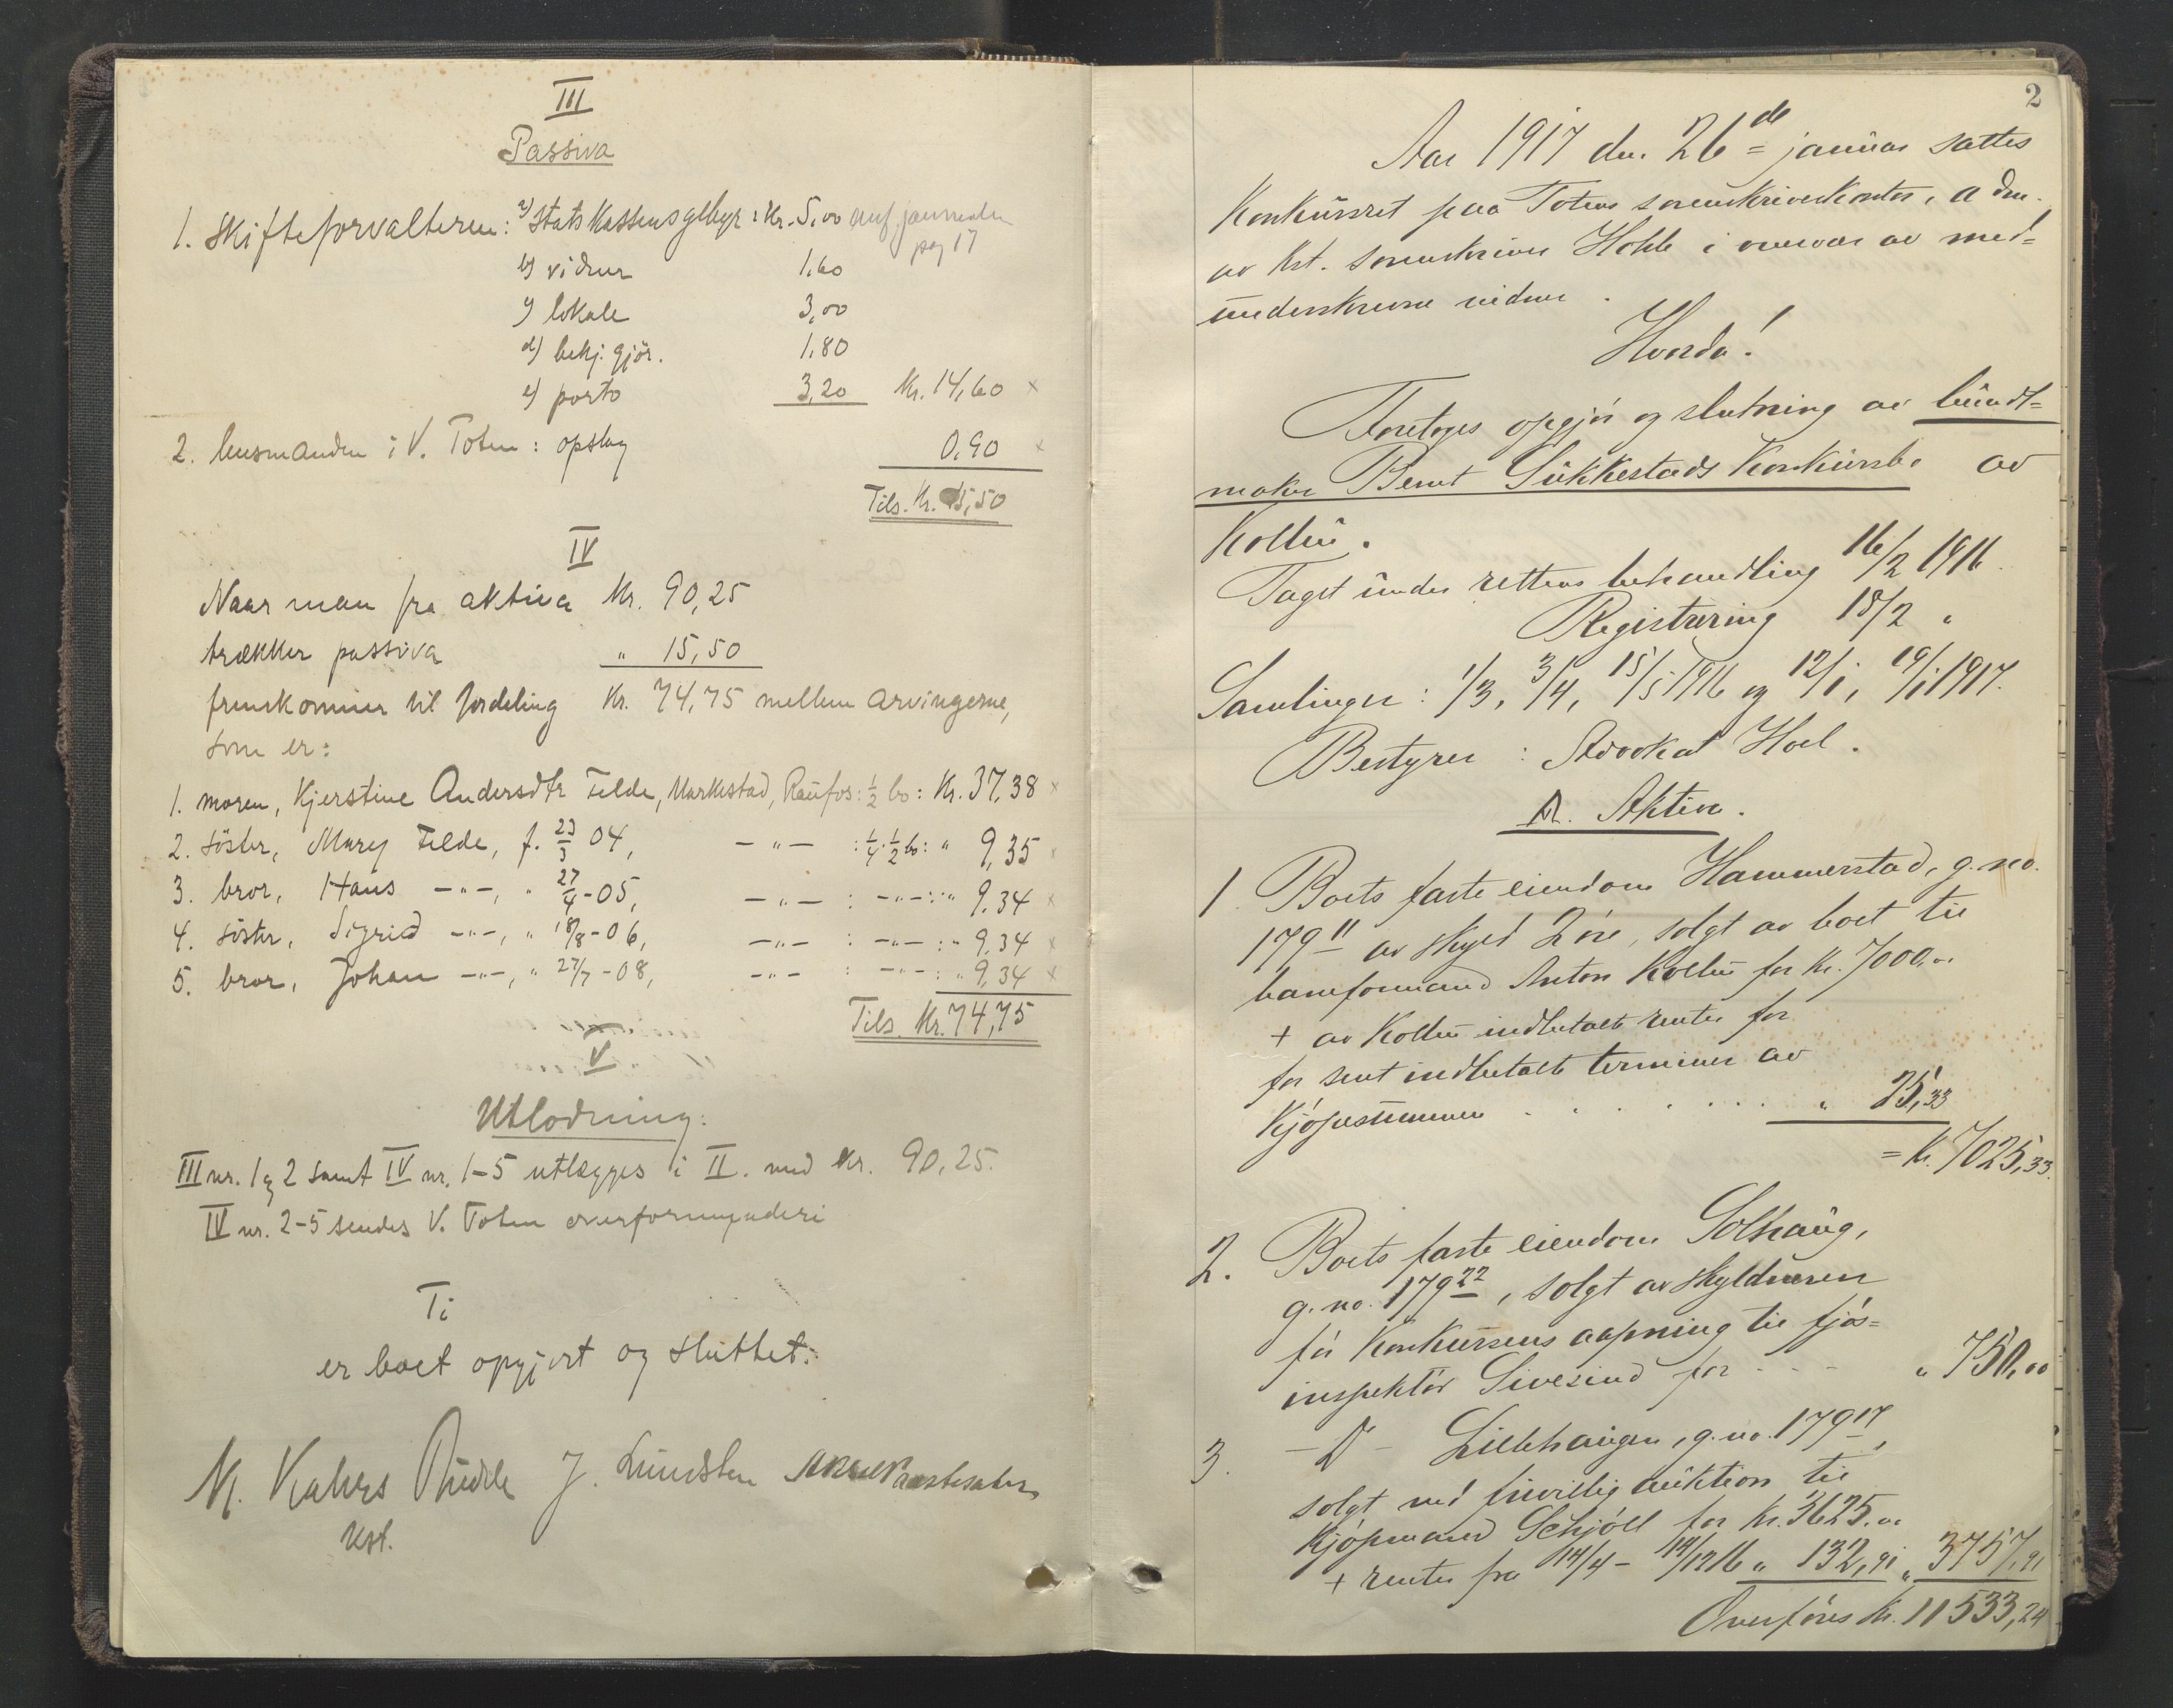 III
Passiva
1. Skifteforvalteren: a) Statskassens gebyr: Kr. 5,00 anf. journalen
pag 17
b) vidner 1,60
c) lokale 3,00
d) bekj. gjör. 1,80
e) porto 3,20 Kr. 14,60 x
2. lensmanden i V. Toten: opslag 0,90 x
Tils. Kr. 15,50
IV
Naar man fra aktiva Kr. 90,25
trækker passiva " 15,50
fremkommer til fordeling Kr. 74,75 mellem arvingerne,
som er:
1. moren, Kjerstine Andersdtr Felde, Markestad, Raufos: ½ bo: Kr. 37,38 x
2. söster, Mary Felde, f. 23/3 04, — " — : ¼ · ½ bo: " 9,35 x
3. bror, Hans — " —, " 27/4 - 05, — " — : — " — : " 9,34 x
4. söster, Sigrid — " —, " 18/8 - 06, — " — : — " — : " 9,34 x
5. bror, Johan — " —, " 27/7 - 08, — " — : — " — : " 9,34 x
Tils. Kr. 74,75
V
Utlodning:
III nr. 1 og 2 samt IV nr. 1-5 utlægges i II. med Kr. 90,25.
IV nr. 2-5 sendes V. Toten overformynderi
Ti
er boet opgjort og sluttet.
J. Lundsten
kst.
2
Aar 1917 den 26de januar sattes
Konkursret paa Totens sorenskriverkontor, adm.
av kst. sorenskriver Hohle i overvær av med=
underskrevne vidner.
Hvorda!
Foretoges opgjör og slutning av bundt=
maker Bernt Sukkestads Konkursbo av
Kolbu.
Taget under rettens behandling 16/2 1916.
Registrering 18/2 "
Samlinger: 1/3, 3/4, 15/5 1916 og 12/1, 19/1 1917.
Bestyrer: Advokat Hoel.
A. Aktiva.
1 Boets faste eiendom Hammerstad, g. no.
179 11 av skyld 2 öre, solgt av boet til
baneformand Anton Kolbu for Kr. 7000,00
+ av Kolbu indbetalt renter for
for sent indbetalt terminer av
Kjöpesummen . . . . . . . " 25,33
= Kr. 7025,33.
2. Boets faste eiendom Solhaug,
g. no. 179 22, solgt av skyldneren
för Konkursens aapning til fjös=
inspektör Sivesind for - - - " 750,00
3. — D — Lillehaugen, g. no. 179 17,
solgt ved frivillig auktion til
Kjöpmand Schjöll for Kr. 3625,00
+ renter fra 14/4 - 14/12 16 " 132,91 " 3757,91
Overföres Kr. 11533,24